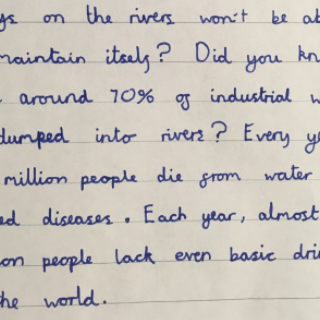 ys on the rivers won't be ab
maintain itself? Did you kn
around 70% of industrial w
dumped into rivers? Every ye
million people die from water
ed diseases. Each year, almost
on people lack even basic dri
the world.